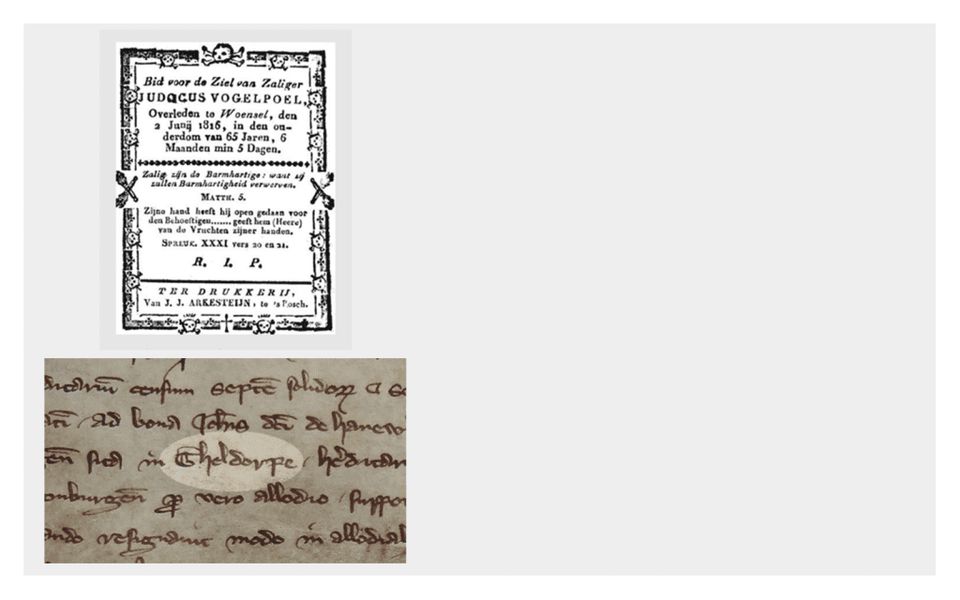 Bid voor de Ziel van Zaliger
JUDOCUS VOGELPOEL,
Overleden te Woensel, den
2 Junij 1816, in den ou-
derdom van 65 Jaren, 6
Maanden min 5 Dagen.
Zalig zijn de Barmhartige: want zij
zullen Barmhartigheid verwerven.
MATTH. 5.
Zijne hand heeft hij open gedaan voor
den Behoeftigen....... geeft hem (Heere)
van de Vruchten zijner handen.
SPREUK. XXXI vers 20 en 21.
R. I. P.
TER DRUKKERIJ,
Van J. J. ARKESTEIJN, te 's Bosch.
censum septē solidorꝝ
ad bona de
sita in Gheldorpe
vero allodio
modo in